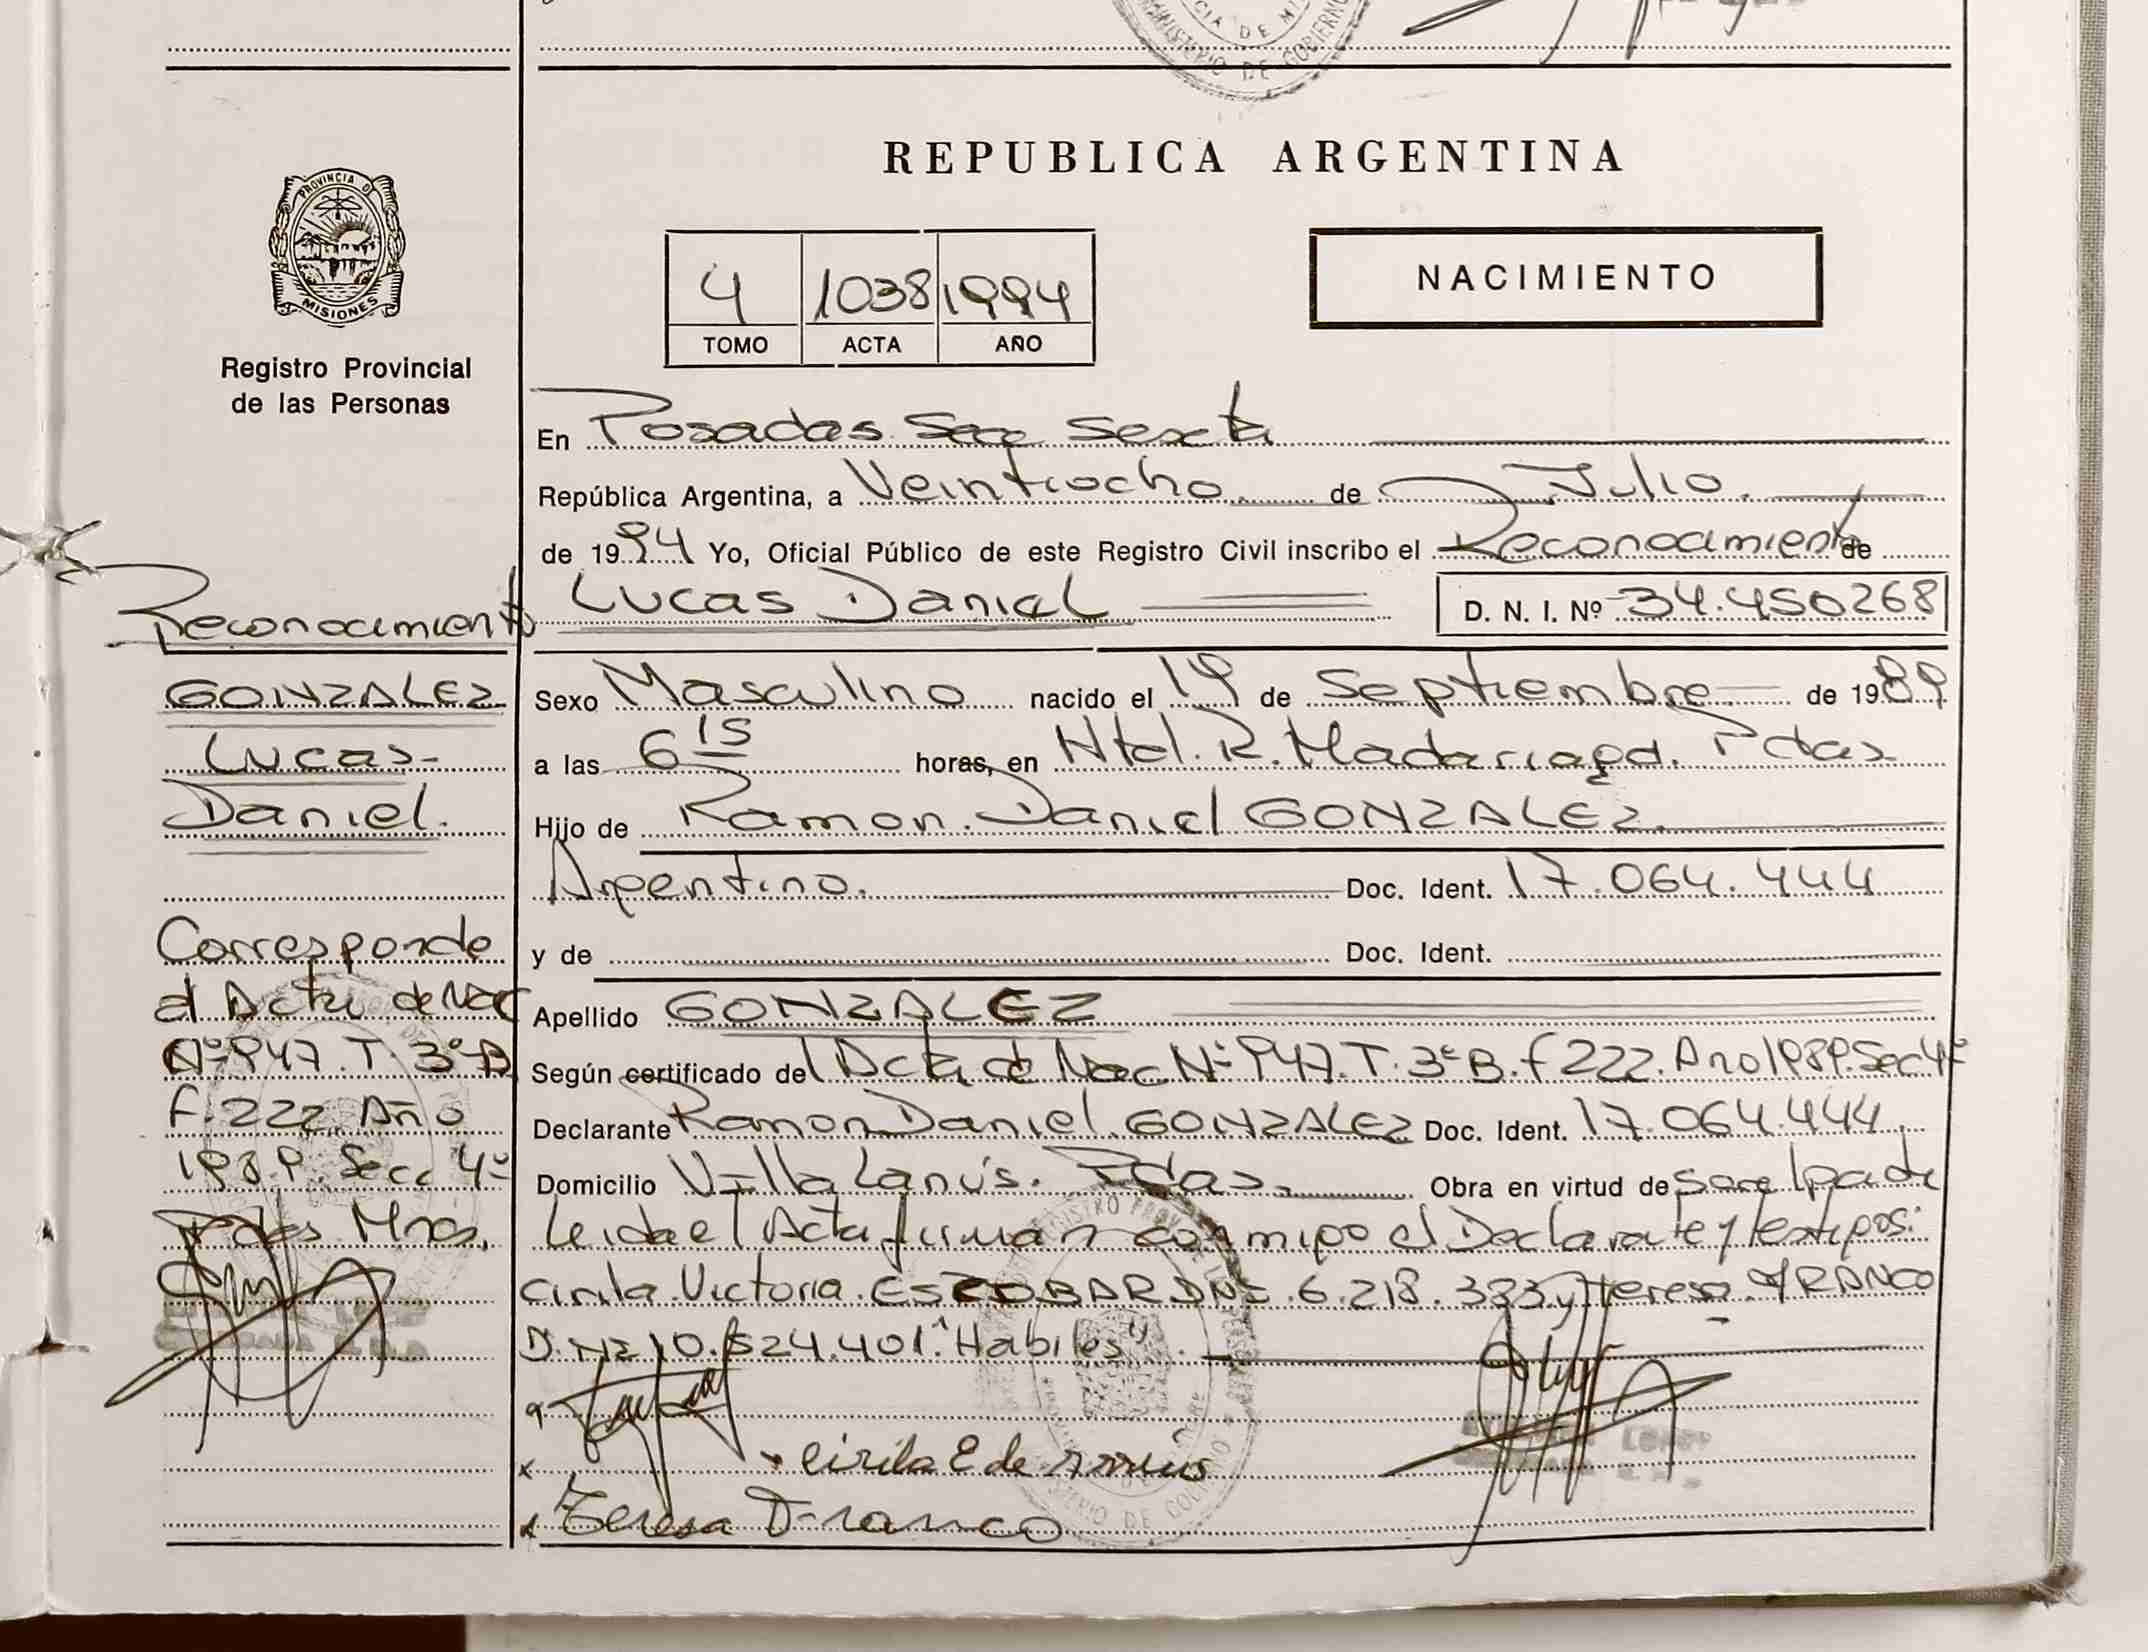 REPUBLICA ARGENTINA
PROVINCIA DE
MISIONES
Registro Provincial
de las Personas
4 1038 1994
TOMO ACTA AÑO
NACIMIENTO
En Posadas Secc Sexta
República Argentina, a Veintiocho de Julio
de 1994 Yo, Oficial Público de este Registro Civil inscribo el Reconocimiento de
Lucas Daniel D. N. I. Nº 34.450268
Sexo Masculino nacido el 19 de Septiembre de 1989
a las 6 15 horas, en Htal. R. Madariaga. Pdas
Hijo de Ramon Daniel GONZALEZ
Argentino. Doc. Ident. 17.064.444
y de Doc. Ident.
Apellido GONZALEZ
Según certificado del Acta de Nac Nº 947. T. 3º B. f 222. Año 1989. Sec 4º
Declarante Ramon Daniel GONZALEZ Doc. Ident. 17.064.444
Domicilio Villa Lanús. Pdas. Obra en virtud de ser el padre
Leida el Acta firman conmigo el Declarante y testigos:
Cirila Victoria ESCOBAR DNI. 6.218.383 y Teresa FRANCO
DNI 10.524.401 "Habiles"
Cirila E de
Teresa Franco
Reconocimiento
GONZALEZ
Lucas-
Daniel.
Corresponde
al Acta de Nac
Nº 947. T. 3º B
f. 222 Año
1989. Secc 4º
Pdas Mnes.